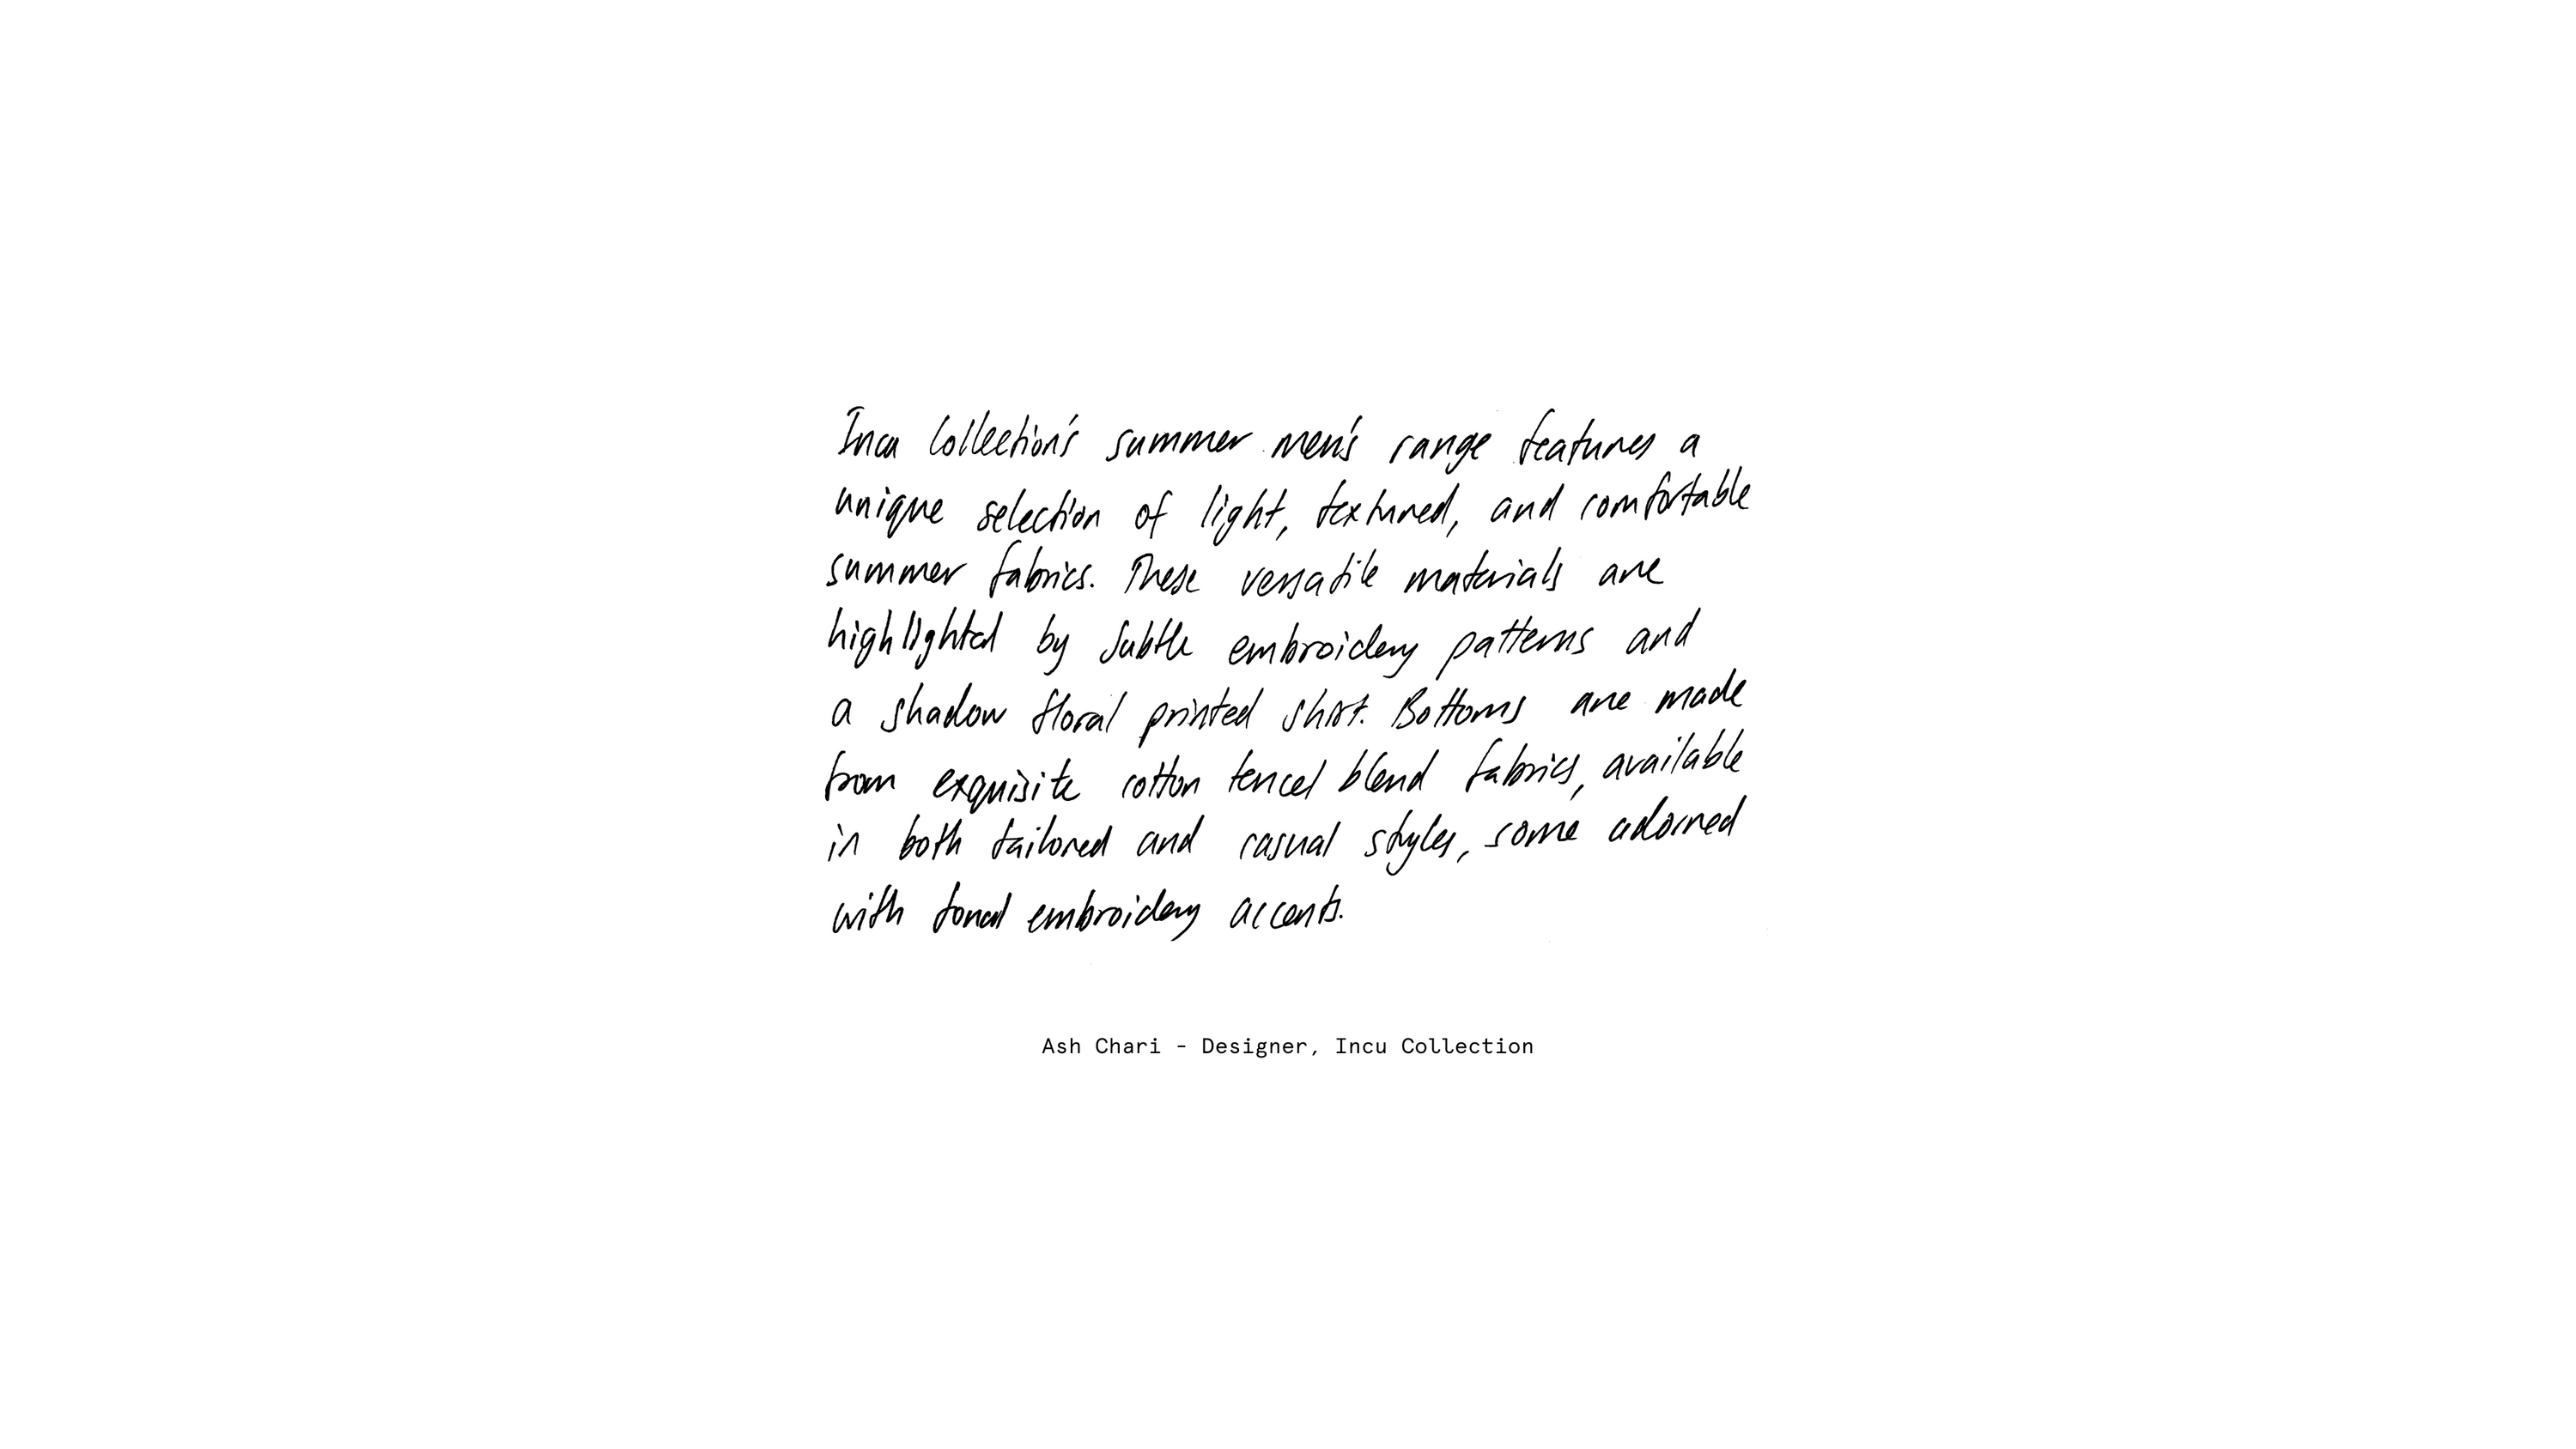 Incu Collection's summer men's range features a
unique selection of light, textured, and comfortable
summer fabrics. These versatile materials are
highlighted by subtle embroidery patterns and
a shadow floral printed shirt. Bottoms are made
from exquisite cotton tencel blend fabrics, available
in both tailored and casual styles, some adorned
with tonal embroidery accents.
Ash Chari - Designer, Incu Collection